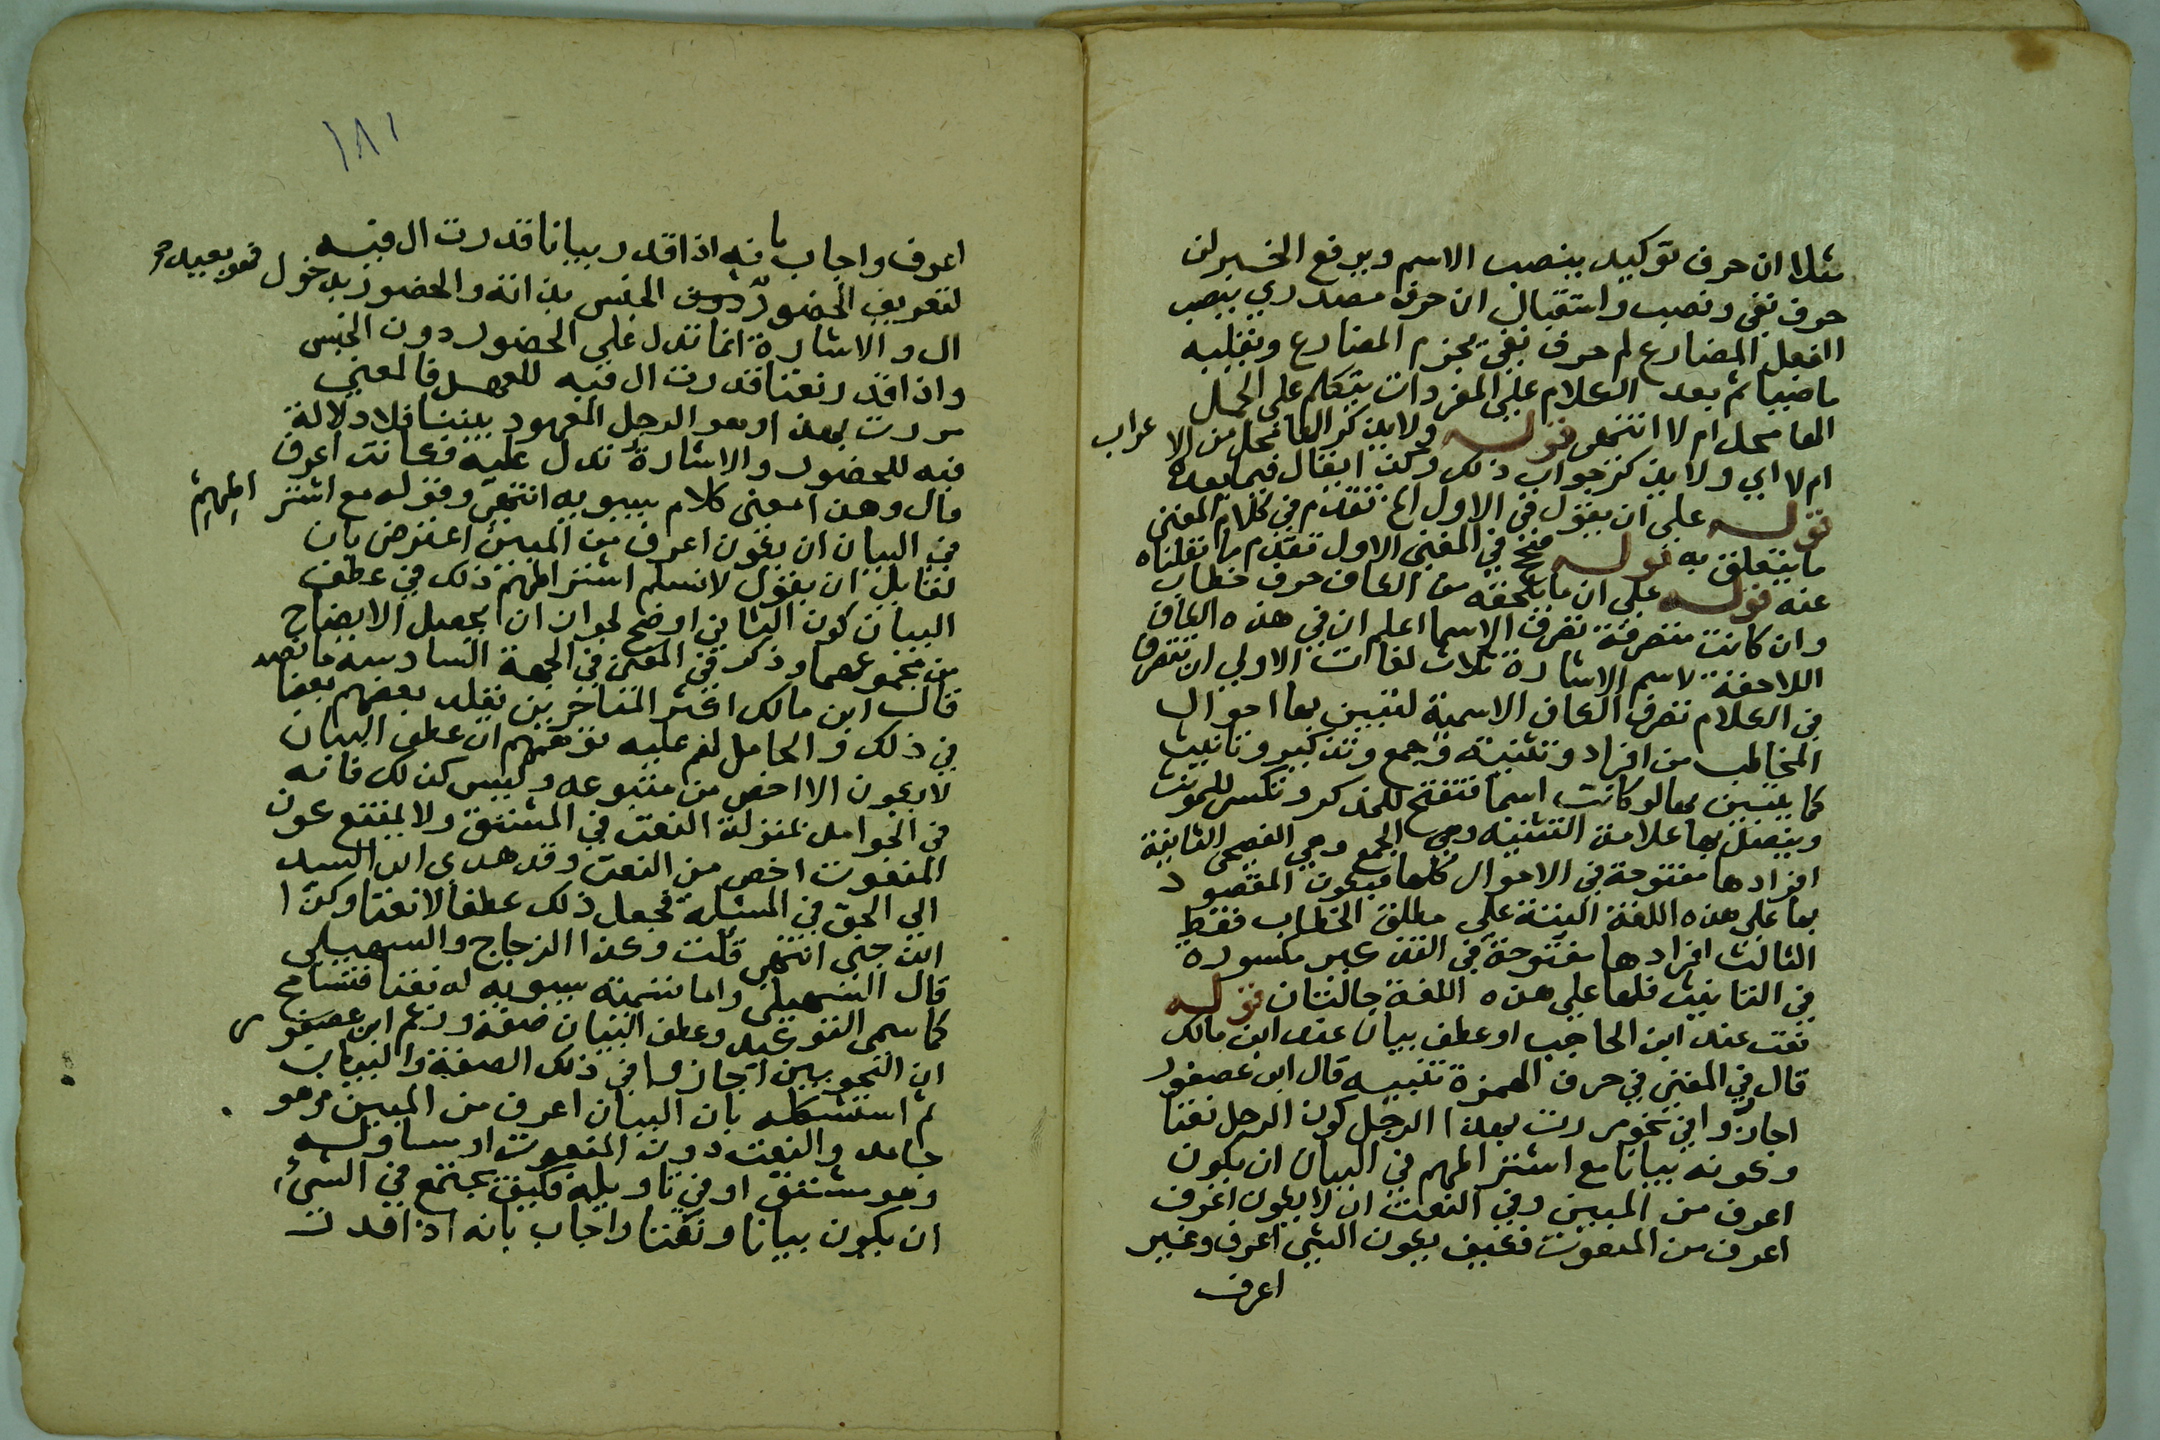 مثلا ان حرف توكيد ينصب الاسم ويرفع الخبر لن
حرف نفي ونصب واستقبال ان حرف مصدري ينصب
الفعل المضارع لم حرف نفي يجزم المضارع ويقلبه
ماضيا ثم بعد الكلام على المفردات يتكلم على الجمل
الها محل ام لا انتهى قوله ولا يذكر الها محل من الاعراب
ام لا اي ولا يذكر جواب ذلك وكذا يقال فيما بعده
قوله على ان يقول في الاول الخ تقدم في كلام المغني
ما يتعلق به قوله فتح في المغني الاول تقدم ما نقلناه
عنه قوله على ان ما يلحقه من الكاف حرف خطاب
وان كانت متصرفة تصرف الاسما اعلم ان في هذه الكاف
اللاحقة لاسم الاشارة ثلاث لغات الاولى ان تتصرف
في الكلام تصرف الكاف الاسمية لتبيين بها احوال
المخاطب من افراد وتثنية وجمع وتذكير وتانيث
كما يتبين بها لو كانت اسما فتفتح للمذكر وتكسر للمونث
ويتصل بها علامة التثنية وهي الجمع وهي الفصحى الثانية
افرادها مفتوحة في الاحوال كلها فيكون المقصود
بها على هذه اللغة البتة على مطلق الخطاب فقط
الثالث افرادها مفتوحة في التذكير مكسورة
في التانيث فلها على هذه اللغة حالتان قوله
نعت عند ابن الحاجب او عطف بيان عند ابن مالك
قال في المغني في حرف الهمزة تنبيه قال ابن عصفور
اجازوا في نحو مررت بهذا الرجل كون الرجل نعتا
وكونه بيانا مع اشتراطهم في البيان ان يكون
اعرف من المبين وفي النعت ان لا يكون اعرف
اعرف من المنعوت فكيف يكون الشي اعرف وغير
اعرف
١٨١
اعرف واجاب بانه اذا قدر بيانا قدرت ال فيه
لتعريف الحضور دون الجنس بذاته والحضور بدخول فهو يفيد
ال والاشارة انما تدل على الحضور دون الجنس
واذا قدر نعتا قدرت ال فيه للعهد فالمعنى
مررت بهذا وهو الرجل المعهود بيننا فلا دلالة
فيه للحضور والاشارة تدل عليه فكانت اعرف
قال وهذا معنى كلام سيبويه انتهى وقوله مع اشتراطهم
في البيان ان يكون اعرف من المبين اعترض بان
لقايل ان يقول لا نسلم اشتراطهم ذلك في عطف
البيان كون الثاني اوضح لجواز ان يحصل الايضاح
من مجموعهما وذكر في المغني في الجهة السادسة ما نصه
قال ابن مالك اكثر المتاخرين يقلد بعضهم بعضا
في ذلك والحامل لهم عليه توهمهم ان عطف البيان
لا يكون الا اخص من متبوعه وليس كذلك فانه
في الجوامد بمنزلة النعت في المشتق ولا يمتنع كون
المنعوت اخص من النعت وقد هدي ابن السيد
الى الحق في المسئلة فجعل ذلك عطفا لا نعتا وكذا
ابن جني انتهى قلت وكذا الزجاج والسهيلي
قال السهيلي واما تسمية سيبويه له نعتا فتسامح
كما سمى التوكيد وعطف البيان صفة وزعم ابن عصفور
ان النحويين اجازوا في ذلك الصفة والبيان
ثم استشكله بان البيان اعرف من المبين وهو
جامد والنعت دون المنعوت او مساو له
وهو مشتق او في تاويله فكيف يجتمع في الشيء
ان يكون بيانا ونعتا واجاب بانه اذا قدرت